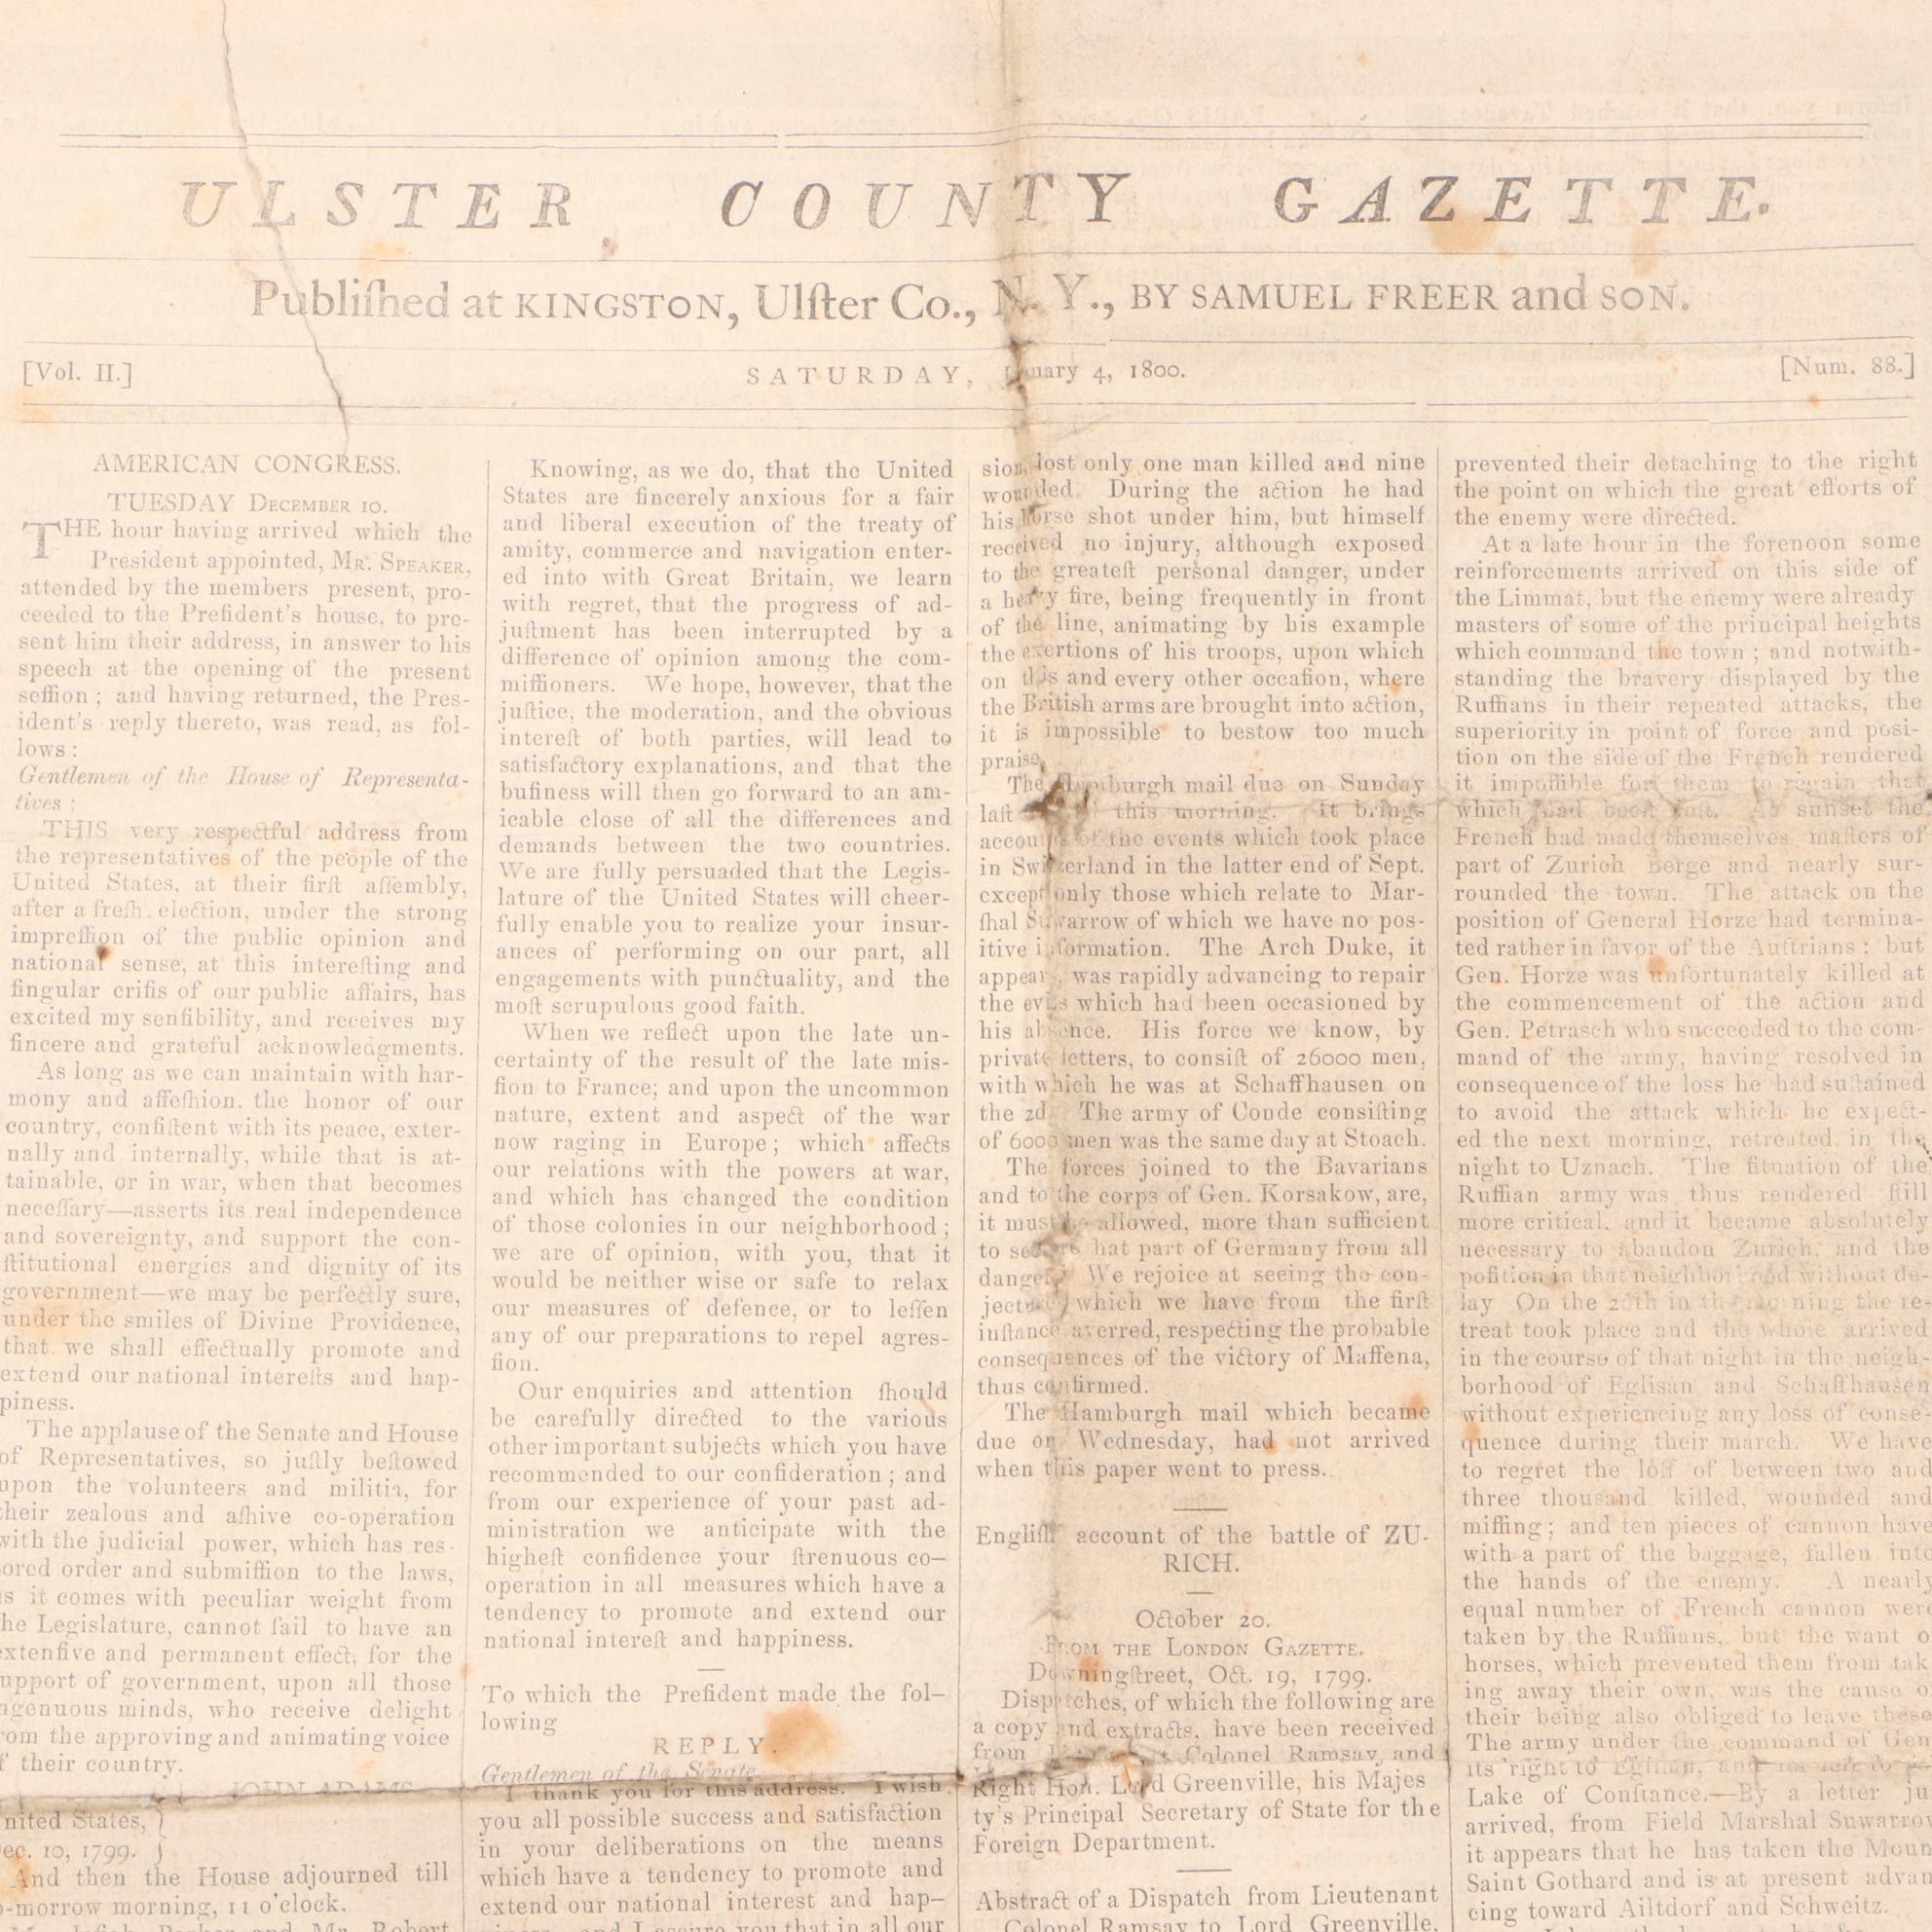 ULSTER COUNTY GAZETTE.
Publiſhed at KINGSTON, Ulſter Co., N. Y., BY SAMUEL FREER and SON.
[Vol. II.]
SATURDAY, nuary 4, 1800.
[Num. 88.]
AMERICAN CONGRESS.
TUESDAY DECEMBER 10.
THE hour having arrived which the
President appointed, MR. SPEAKER,
attended by the members present, pro-
ceeded to the Preſident's house, to pre-
sent him their address, in answer to his
speech at the opening of the present
seſſion ; and having returned, the Pres-
ident's reply thereto, was read, as fol-
lows :
Gentlemen of the House of Representa-
tives :
THIS very respectful address from
the representatives of the people of the
United States, at their firſt aſſembly,
after a freſh election, under the strong
impreſſion of the public opinion and
national sense, at this intereſting and
ſingular criſis of our public affairs, has
excited my senſibility, and receives my
ſincere and grateful acknowledgments.
As long as we can maintain with har-
mony and affeſhion. the honor of our
country, conſiſtent with its peace, exter-
nally and internally, while that is at-
tainable, or in war, when that becomes
neceſſary—asserts its real independence
and sovereignty, and support the con-
ſtitutional energies and dignity of its
government—we may be perfectly sure,
under the smiles of Divine Providence,
that we shall effectually promote and
extend our national intereſts and hap-
piness.
The applause of the Senate and House
of Representatives, so juſtly beſtowed
upon the volunteers and militia, for
their zealous and aſhive co-operation
with the judicial power, which has res-
ored order and submiſſion to the laws,
as it comes with peculiar weight from
the Legislature, cannot fail to have an
extenſive and permanent effect, for the
support of government, upon all those
ingenuous minds, who receive delight
from the approving and animating voice
of their country.
JOHN ADAMS
nited States, }
ec. 10, 1799. }
And then the House adjourned till
-morrow morning, 11 o'clock.
Parker and Mr. Robert
Knowing, as we do, that the United
States are ſincerely anxious for a fair
and liberal execution of the treaty of
amity, commerce and navigation enter-
ed into with Great Britain, we learn
with regret, that the progress of ad-
juſtment has been interrupted by a
difference of opinion among the com-
miſſioners. We hope, however, that the
juſtice, the moderation, and the obvious
intereſt of both parties, will lead to
satisfactory explanations, and that the
buſiness will then go forward to an am-
icable close of all the differences and
demands between the two countries.
We are fully persuaded that the Legis-
lature of the United States will cheer-
fully enable you to realize your insur-
ances of performing on our part, all
engagements with punctuality, and the
moſt scrupulous good faith.
When we reflect upon the late un-
certainty of the result of the late mis-
ſion to France; and upon the uncommon
nature, extent and aspect of the war
now raging in Europe; which affects
our relations with the powers at war,
and which has changed the condition
of those colonies in our neighborhood ;
we are of opinion, with you, that it
would be neither wise or safe to relax
our measures of defence, or to leſſen
any of our preparations to repel agres-
ſion.
Our enquiries and attention ſhould
be carefully directed to the various
other important subjects which you have
recommended to our conſideration ; and
from our experience of your past ad-
ministration we anticipate with the
higheſt confidence your ſtrenuous co-
operation in all measures which have a
tendency to promote and extend our
national intereſt and happiness.
To which the Preſident made the fol-
lowing
REPLY.
Gentlemen of the Senate.
I thank you for this address. I wish
you all possible success and satisfaction
in your deliberations on the means
which have a tendency to promote and
extend our national interest and hap-
and I assure you that in all our
sion, lost only one man killed and nine
wounded. During the action he had
his horse shot under him, but himself
received no injury, although exposed
to the greateſt personal danger, under
a heavy fire, being frequently in front
of the line, animating by his example
the exertions of his troops, upon which
on this and every other occaſion, where
the British arms are brought into action,
it is impossible to bestow too much
praise.
The burgh mail due on Sunday
laſt this morning. It brings
accounts of the events which took place
in Switzerland in the latter end of Sept.
except only those which relate to Mar-
ſhal Suwarrow of which we have no pos-
itive information. The Arch Duke, it
appears, was rapidly advancing to repair
the evils which had been occasioned by
his absence. His force we know, by
private letters, to consiſt of 26000 men,
with which he was at Schaffhausen on
the 2d. The army of Conde conſiſting
of 6000 men was the same day at Stoach.
The forces joined to the Bavarians
and to the corps of Gen. Korsakow, are,
it must be allowed, more than sufficient
to secure that part of Germany from all
danger. We rejoice at seeing the con-
jecture, which we have from the firſt
inſtance averred, respecting the probable
consequences of the victory of Maſſena,
thus confirmed.
The Hamburgh mail which became
due on Wednesday, had not arrived
when this paper went to press.
Engliſh account of the battle of ZU-
RICH.
October 20.
FROM THE LONDON GAZETTE.
Downingſtreet, Oct. 19, 1799.
Dispatches, of which the following are
a copy and extracts, have been received
from Colonel Ramsay and
Right Hon. Lord Greenville, his Majes
ty's Principal Secretary of State for the
Foreign Department.
Abstract of a Dispatch from Lieutenant
Colonel Ramsay to Lord Greenville.
prevented their detaching to the right
the point on which the great efforts of
the enemy were directed.
At a late hour in the forenoon some
reinforcements arrived on this side of
the Limmat, but the enemy were already
masters of some of the principal heights
which command the town ; and notwith-
standing the bravery displayed by the
Ruſſians in their repeated attacks, the
superiority in point of force and posi-
tion on the side of the French rendered
it impoſſible for them to regain that
which had been lost. At sunset the
French had made themselves maſters of
part of Zurich Berge and nearly sur-
rounded the town. The attack on the
position of General Horze had termina-
ted rather in favor of the Auſtrians : but
Gen. Horze was unfortunately killed at
the commencement of the action and
Gen. Petrasch who succeeded to the com-
mand of the army, having resolved in
consequence of the loss he had suſtained
to avoid the attack which he expect-
ed the next morning, retreated in the
night to Uznach. The ſituation of the
Ruſſian army was thus rendered ſtill
more critical, and it became absolutely
necessary to abandon Zurich, and the
poſition in that neighborhood without de-
lay On the 26th in the morning the re-
treat took place and the whole arrived
in the course of that night in the neigh-
borhood of Eglisan and Schaffhausen
without experiencing any loss of conse-
quence during their march. We have
to regret the loſſ of between two and
three thousand killed, wounded and
miſſing; and ten pieces of cannon have
with a part of the baggage, fallen into
the hands of the enemy. A nearly
equal number of French cannon were
taken by the Ruſſians, but the want o
horses, which prevented them from tak
ing away their own, was the cause o
their being also obliged to leave these
The army under the command of Gen
its right to Eglisan, and its left to
Lake of Conſtance.—By a letter ju
arrived, from Field Marshal Suwarrow
it appears that he has taken the Moun
Saint Gothard and is at present advan
cing toward Ailtdorf and Schweitz.